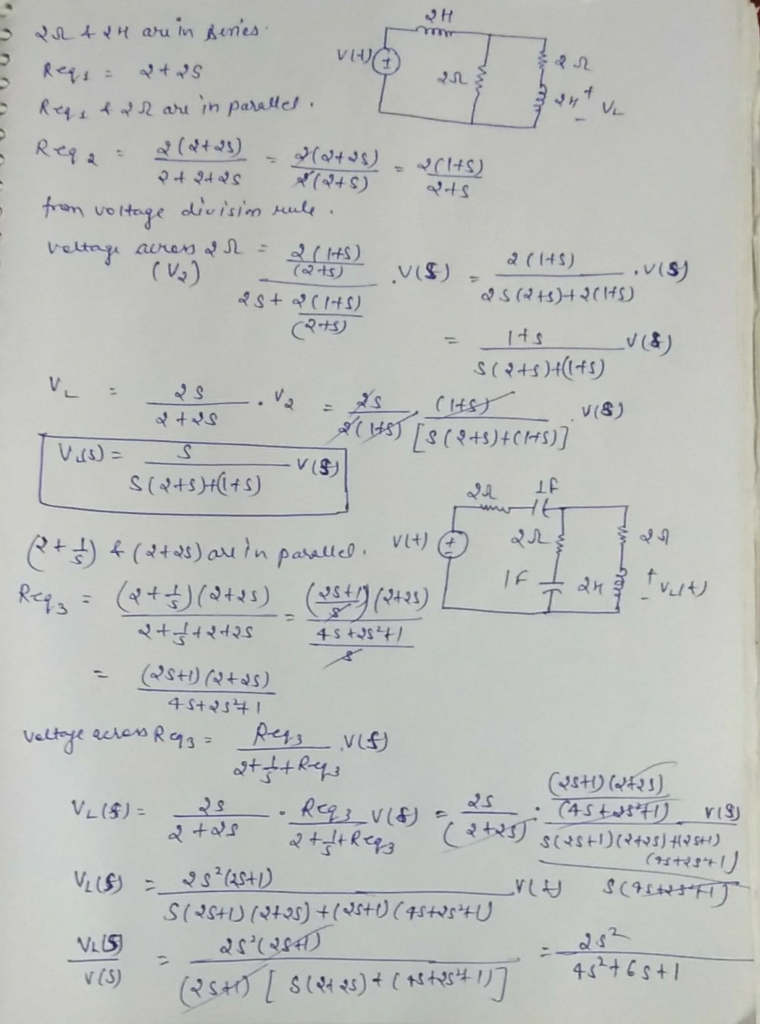 2Ω & 2H are in series.
Req1 = 2+2S
Req1 & 2Ω are in parallel.
2H
V(t)
2Ω
2Ω
2H + - VL
Req2 = 2(2+2S) / (2+2+2S) = 2(2+2S) / 2(2+S) = 2(1+S) / (2+S)
from voltage division rule.
voltage across 2Ω (V2) = [2(1+S)/(2+S)] / [2S + 2(1+S)/(2+S)] . V(S) = 2(1+S) / (2S(2+S)+2(1+S)) . V(S)
= (1+S) / (S(2+S)+(1+S)) V(S)
VL = 2S / (2+2S) . V2 = 2S / 2(1+S) . (1+S) / [S(2+S)+(1+S)] V(S)
VL(S) = S / (S(2+S)+(1+S)) V(S)
2Ω 1F
V(t)
2Ω
2Ω
1F
2H + - VL(t)
(2+1/S) & (2+2S) are in parallel.
Req3 = (2+1/S)(2+2S) / (2+1/S+2+2S) = ((2S+1)/S)(2+2S) / ((4S+2S²+1)/S)
= (2S+1)(2+2S) / (4S+2S²+1)
voltage across Req3 = Req3 / (2+1/S+Req3) . V(S)
VL(S) = 2S / (2+2S) . Req3 / (2+1/S+Req3) V(S) = 2S / (2+2S) . [(2S+1)(2+2S) / (4S+2S²+1)] / [S(2S+1)(2+2S)+(2S+1)(4S+2S²+1) / S(4S+2S²+1)] V(S)
VL(S) = 2S²(2S+1) / (S(2S+1)(2+2S)+(2S+1)(4S+2S²+1)) V(S)
VL(S) / V(S) = 2S²(2S+1) / ((2S+1)[S(2+2S)+(4S+2S²+1)]) = 2S² / (4S²+6S+1)